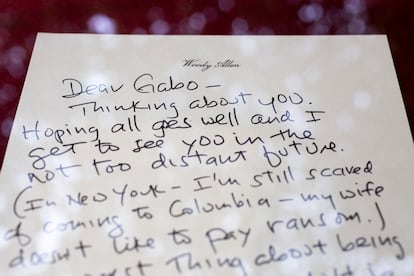 Woody Allen
Dear Gabo —
Thinking about you.
Hoping all goes well and I
get to see you in the
not too distant future.
(In New York — I'm still scared
of coming to Colombia — my wife
doesn't like to pay ransom.)
Thing about being